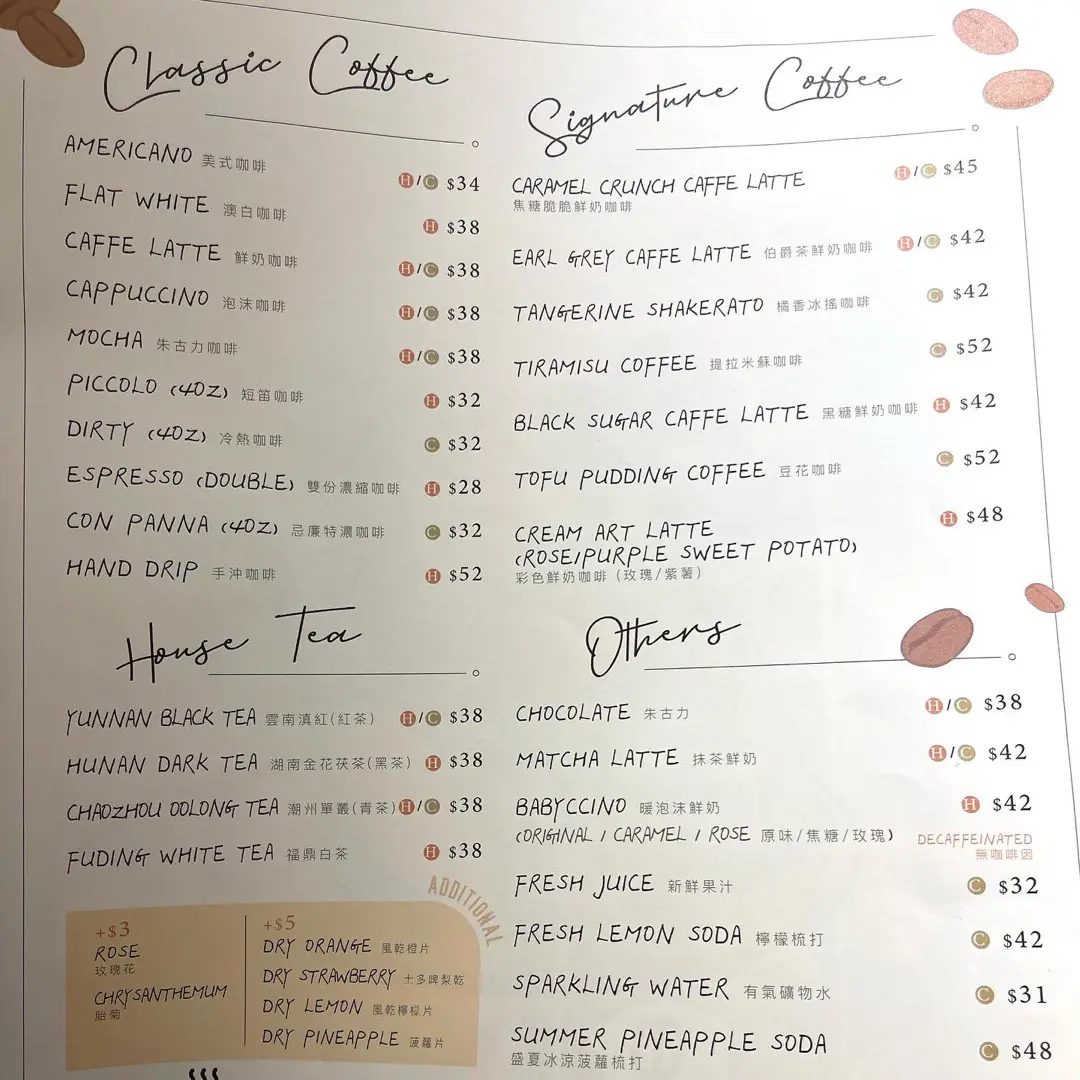 Classic Coffee
AMERICANO 美式咖啡 H/C $34
FLAT WHITE 澳白咖啡 H $38
CAFFE LATTE 鮮奶咖啡 H/C $38
CAPPUCCINO 泡沫咖啡 H/C $38
MOCHA 朱古力咖啡 H/C $38
PICCOLO (4OZ) 短笛咖啡 H $32
DIRTY (4OZ) 冷熱咖啡 C $32
ESPRESSO (DOUBLE) 雙份濃縮咖啡 H $28
CON PANNA (4OZ) 忌廉特濃咖啡 C $32
HAND DRIP 手沖咖啡 H $52
Signature Coffee
CARAMEL CRUNCH CAFFE LATTE H/C $45
焦糖脆脆鮮奶咖啡
EARL GREY CAFFE LATTE 伯爵茶鮮奶咖啡 H/C $42
TANGERINE SHAKERATO 橘香冰搖咖啡 C $42
TIRAMISU COFFEE 提拉米蘇咖啡 C $52
BLACK SUGAR CAFFE LATTE 黑糖鮮奶咖啡 H $42
TOFU PUDDING COFFEE 豆花咖啡 C $52
CREAM ART LATTE H $48
(ROSE/PURPLE SWEET POTATO)
彩色鮮奶咖啡 (玫瑰/紫薯)
House Tea
YUNNAN BLACK TEA 雲南滇紅(紅茶) H/C $38
HUNAN DARK TEA 湖南金花茯茶(黑茶) H $38
CHAOZHOU OOLONG TEA 潮州單叢(青茶) H/C $38
FUDING WHITE TEA 福鼎白茶 H $38
ADDITIONAL
+$3
ROSE
玫瑰花
CHRYSANTHEMUM
胎菊
+$5
DRY ORANGE 風乾橙片
DRY STRAWBERRY 士多啤梨乾
DRY LEMON 風乾檸檬片
DRY PINEAPPLE 菠蘿片
Others
CHOCOLATE 朱古力 H/C $38
MATCHA LATTE 抹茶鮮奶 H/C $42
BABYCCINO 暖泡沫鮮奶 H $42
(ORIGINAL / CARAMEL / ROSE 原味/焦糖/玫瑰) DECAFFEINATED
無咖啡因
FRESH JUICE 新鮮果汁 C $32
FRESH LEMON SODA 檸檬梳打 C $42
SPARKLING WATER 有氣礦物水 C $31
SUMMER PINEAPPLE SODA C $48
盛夏冰涼菠蘿梳打